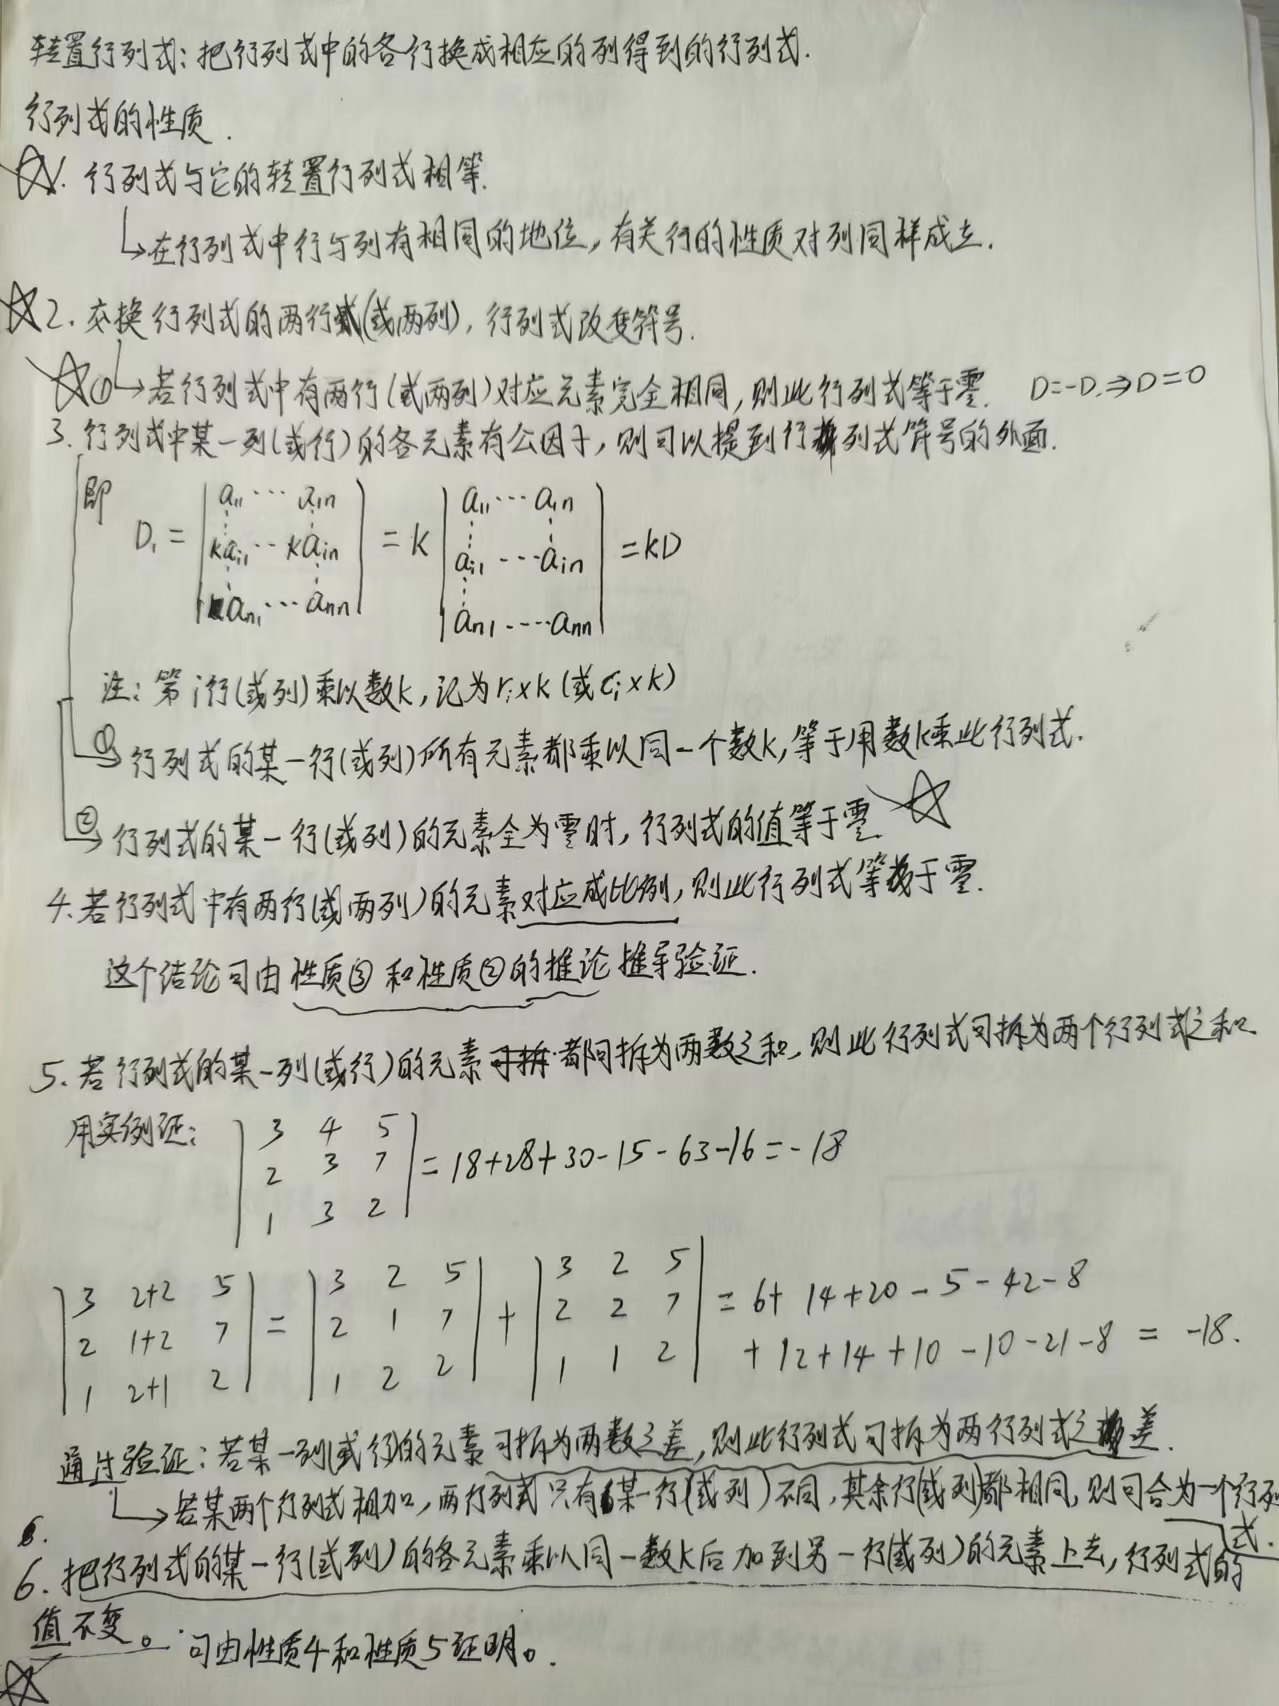 转置行列式：把行列式中的各行换成相应的列得到的行列式.
行列式的性质.
☆1. 行列式与它的转置行列式相等.
↳在行列式中行与列有相同的地位，有关行的性质对列同样成立.
☆2. 交换行列式的两行(或两列)，行列式改变符号.
☆①↳若行列式中有两行(或两列)对应元素完全相同，则此行列式等于零. D=-D.⇒D=0
3. 行列式中某一列(或行)的各元素有公因子，则可以提到行列式符号的外面.
即
D₁ = | a₁₁ ⋯ a₁ₙ ⋮ kaᵢ₁ ⋯ kaᵢₙ ⋮ aₙ₁ ⋯ aₙₙ | = k | a₁₁ ⋯ a₁ₙ ⋮ aᵢ₁ ⋯ aᵢₙ ⋮ aₙ₁ ⋯ aₙₙ | = kD
注：第i行(或列)乘以数k，记为rᵢ×k (或cᵢ×k)
①行列式的某一行(或列)所有元素都乘以同一个数k,等于用数k乘此行列式.
②行列式的某一行(或列)的元素全为零时，行列式的值等于零 ☆
4. 若行列式中有两行(或两列)的元素对应成比例，则此行列式等于零.
这个结论可由性质③和性质②的推论推导验证.
5. 若行列式的某一列(或行)的元素都可拆为两数之和，则此行列式可拆为两个行列式之和
用实例证：
| 3 4 5
2 3 7
1 3 2 | = 18+28+30-15-63-16=-18
| 3 2+2 5
2 1+2 7
1 2+1 2 | = | 3 2 5
2 1 7
1 2 2 | + | 3 2 5
2 2 7
1 1 2 | = 6+14+20-5-42-8
+12+14+10-10-21-8 = -18.
通过验证：若某一列(或行)的元素可拆为两数之差,则此行列式可拆为两行列式之差.
↳若某两个行列式相加，两行列式只有某一行(或列)不同，其余行(或列)都相同，则可合为一个行列
式.
6. 把行列式的某一行(或列)的各元素乘以同一数k后加到另一行(或列)的元素上去，行列式的
值不变。可由性质4和性质5证明。
☆